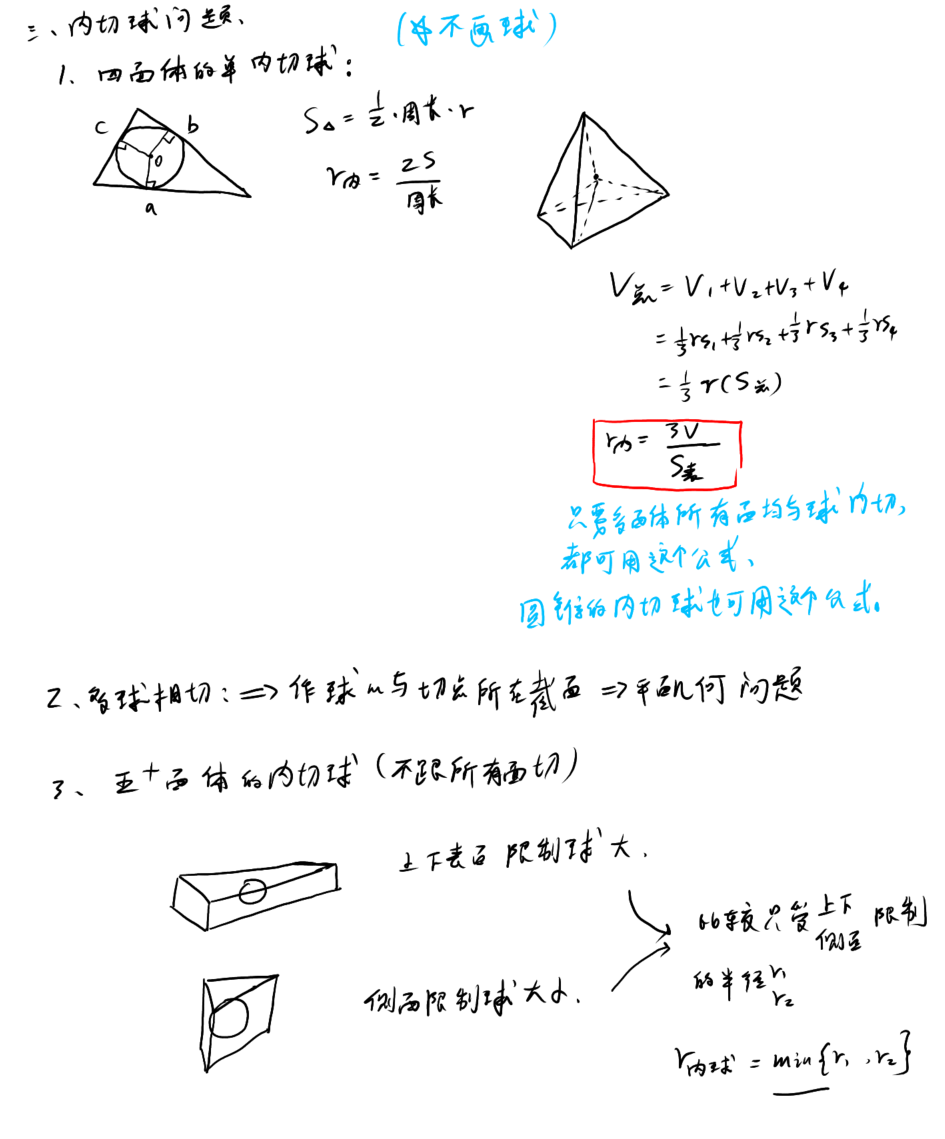 三、内切球问题.
(不画球)
1、四面体的单内切球:
c b
o
a
S△ = 1/2·周长·r
r内 = 2S/周长
V总 = V₁+V₂+V₃+V₄
= 1/3rS₁+1/3rS₂+1/3rS₃+1/3rS₄
= 1/3 r(S总)
r内 = 3V/S表
只要多面体所有面均与球内切,
都可用这个公式、
圆锥的内切球也可用这个公式。
2、多球相切: => 作球心与切点所在截面 => 平面几何问题
3、五⁺面体的内切球(不跟所有面切)
上下表面限制球大.
侧面限制球大小.
比较只管上下 侧面 限制
的半径 r₁ r₂
r内球 = min{r₁,r₂}